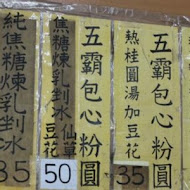 五霸包心粉圓
熱桂圓湯加豆花
35
五霸包心粉圓
焦糖煉乳剉冰
仙草
豆花
50
純焦糖煉乳剉冰